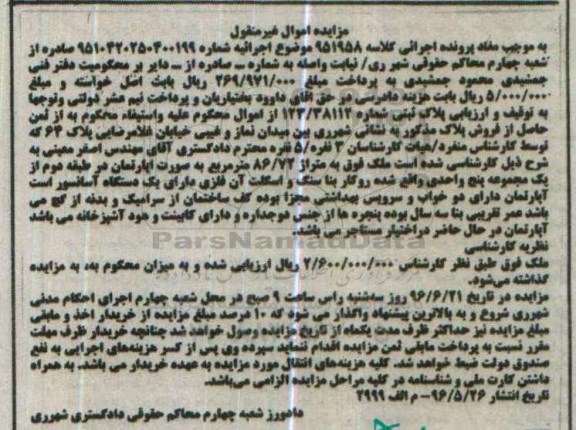 مزایده اموال غیرمنقول
به موجب مفاد پرونده اجرائی کلاسه ۹۵۱۹۵۸ موضوع اجرائیه شماره ۹۵۱۰۴۲۰۲۵۰۴۰۰۱۹۹ صادره از
شعبه چهارم محاکم حقوقی شهر ری/ نیابت واصله به شماره ... صادره از ... دایر بر محکومیت دفتر فنی
جمشیدی محمود جمشیدی به پرداخت مبلغ ۲۶۹/۹۷۱/۰۰۰ ریال بابت اصل خواسته و مبلغ
۵/۰۰۰/۰۰۰ ریال بابت هزینه دادرسی در حق آقای داوود بختیاریان و پرداخت نیم عشر دولتی وتوجها
به توقیف و ارزیابی پلاک ثبتی شماره ۱۲۳/۳۸۱۱۲ از اموال محکوم علیه واستیفاء محکوم به از ثمن
حاصل از فروش پلاک مذکور به نشانی شهرری بین میدان نماز و غیبی خیابان غلامرضایی پلاک ۶۴ که
توسط کارشناس منفرد/هیات کارشناسان ۳ نفره/۵ نفره محترم دادگستری آقای مهندس اصغر معینی به
شرح ذیل کارشناسی شده است ملک فوق به متراژ ۸۶/۷۲ مترمربع به صورت آپارتمان در طبقه دوم از
یک مجموعه پنج واحدی واقع شده روکار بنا سنگ و اسکلت آن فلزی دارای یک دستگاه آسانسور است
آپارتمان دارای دو خواب و سرویس بهداشتی مجزا بوده کف ساختمان از سرامیک و بدنه از گچ می
باشد عمر تقریبی بنا سه سال بوده پنجره ها از جنس دوجداره و دارای کابینت و هود آشپزخانه می باشد
آپارتمان در حال حاضر دراختیار مستاجر می باشد.
ParsNamadData
نظریه کارشناسی
ملک فوق طبق نظر کارشناس ۲/۶۰۰/۰۰۰/۰۰۰ ریال ارزیابی شده و به میزان محکوم به، به مزایده
گذاشته می‌شود.
مزایده در تاریخ ۹۶/۶/۲۱ روز سه‌شنبه راس ساعت ۹ صبح در محل شعبه چهارم اجرای احکام مدنی
شهرری شروع و به بالاترین پیشنهاد واگذار می شود که ۱۰ درصد مبلغ مزایده از خریدار اخذ و مابقی
مبلغ مزایده نیز حداکثر ظرف مدت یکماه از تاریخ مزایده وصول خواهد شد چنانچه خریدار ظرف مهلت
مقرر نسبت به پرداخت مابقی ثمن مزایده اقدام ننماید سپرده وی پس از کسر هزینه‌های اجرایی به نفع
صندوق دولت ضبط خواهد شد. کلیه هزینه‌های انتقال مورد مزایده به عهده خریدار می باشد. به همراه
داشتن کارت ملی و شناسنامه در کلیه مراحل مزایده الزامی می‌باشد.
تاریخ انتشار ۹۶/۵/۲۶- م الف ۲۹۹۹
دادورز شعبه چهارم محاکم حقوقی دادگستری شهرری